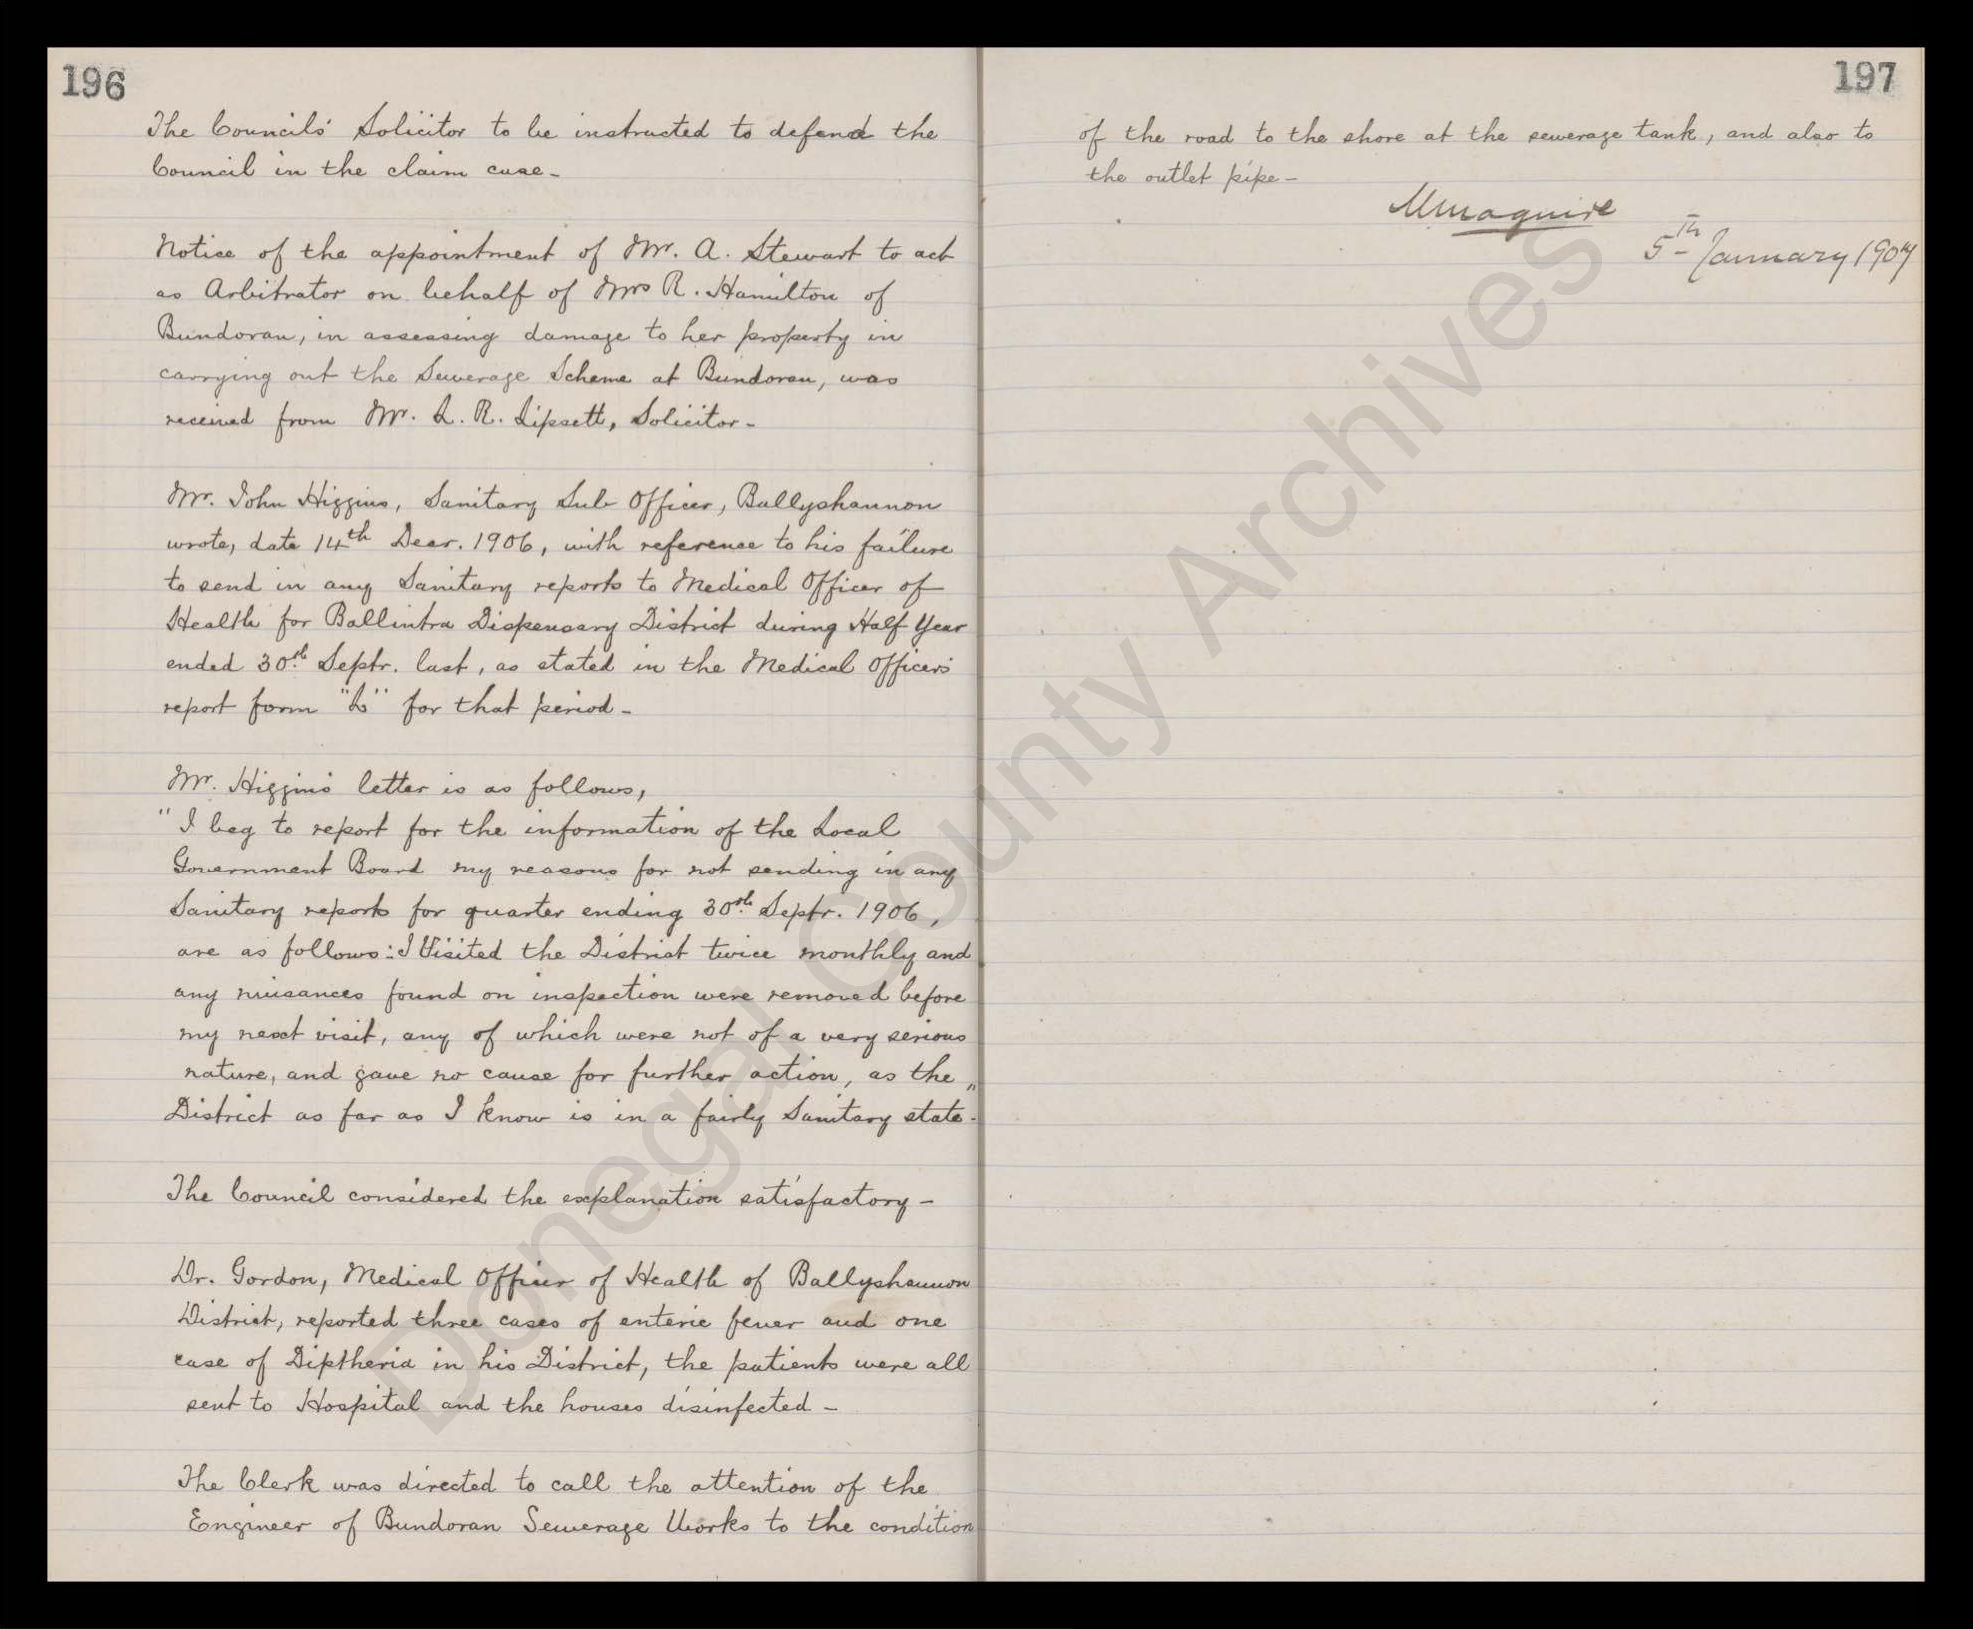 196
The Councils' Solicitor to be instructed to defend the
Council in the claim case -
Notice of the appointment of Mr. A. Stewart to act
as Arbitrator on behalf of Mrs R. Hamilton of
Bundoran, in assessing damage to her property in
carrying out the Sewerage Scheme at Bundoran, was
received from Mr. L. R. Lipsett, Solicitor -
Mr. John Higgins, Sanitary Sub Officer, Ballyshannon
wrote, date 14th Decr. 1906, with reference to his failure
to send in any Sanitary reports to Medical Officer of
Health for Ballintra Dispensary District during Half Year
ended 30th Septr. last, as stated in the Medical Officers'
report form "L" for that period -
Mr. Higgins' letter is as follows,
"I beg to report for the information of the Local
Government Board my reasons for not sending in any
Sanitary reports for quarter ending 30th Septr. 1906,
are as follows: I Visited the District twice monthly and
any nuisances found on inspection were removed before
my next visit, any of which were not of a very serious
nature, and gave no cause for further action, as the
District as far as I know is in a fairly Sanitary state."
The Council considered the explanation satisfactory -
Dr. Gordon, Medical Officer of Health of Ballyshannon
District, reported three cases of enteric fever and one
case of Diptheria in his District, the patients were all
sent to Hospital and the houses disinfected -
The Clerk was directed to call the attention of the
Engineer of Bundoran Sewerage Works to the condition
197
of the road to the shore at the sewerage tank, and also to
the outlet pipe -
MMaguire
5th January 1907
Donegal County Archives